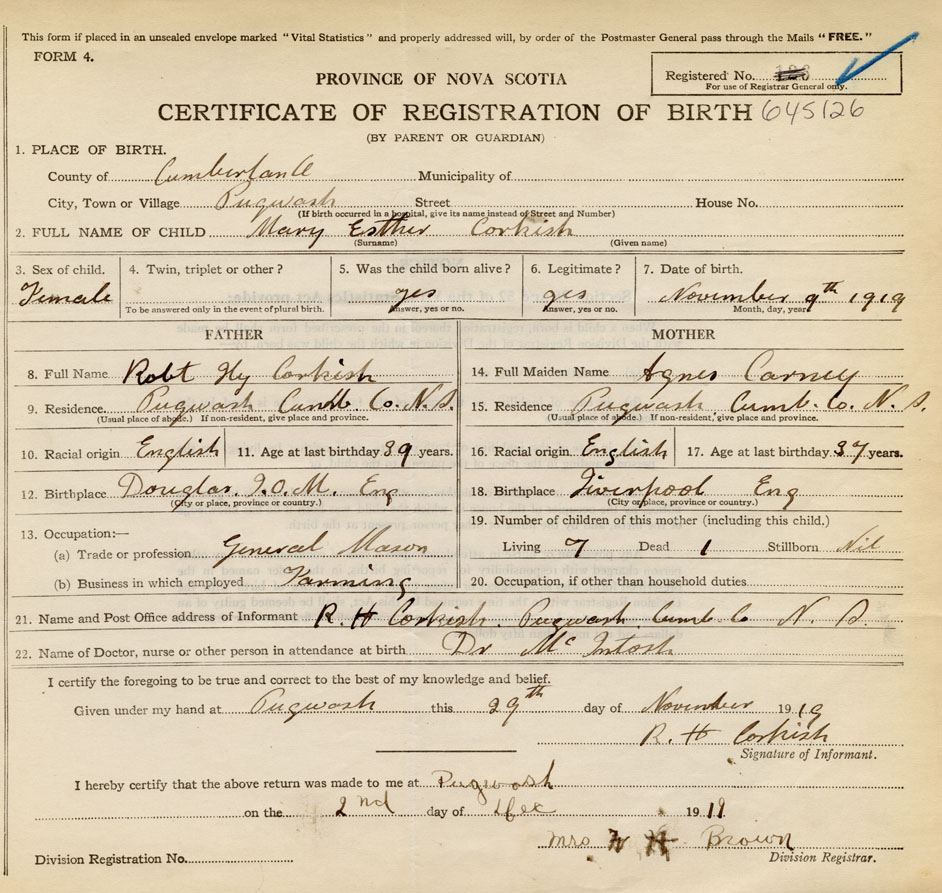 This form if placed in an unsealed envelope marked "Vital Statistics" and properly addressed will, by order of the Postmaster General pass through the Mails "FREE."
FORM 4.
Registered No.
For use of Registrar General only.
PROVINCE OF NOVA SCOTIA
CERTIFICATE OF REGISTRATION OF BIRTH 645126
(BY PARENT OR GUARDIAN)
1. PLACE OF BIRTH.
County of Cumberland Municipality of
City, Town or Village Pugwash Street House No.
(If birth occurred in a hospital, give its name instead of Street and Number)
2. FULL NAME OF CHILD Mary Esther Corkish
(Surname) (Given name)
3. Sex of child. 4. Twin, triplet or other? 5. Was the child born alive? 6. Legitimate? 7. Date of birth.
Female yes yes November 9th 1919
To be answered only in the event of plural birth. Answer, yes or no. Answer, yes or no. Month, day, year
FATHER MOTHER
8. Full Name Robt Hy Corkish 14. Full Maiden Name Agnes Carney
9. Residence. Pugwash Cumb. Co. N.S. 15. Residence Pugwash Cumb. Co. N. S.
(Usual place of abode.) If non-resident, give place and province. (Usual place of abode.) If non-resident, give place and province.
10. Racial origin English 11. Age at last birthday 39 years. 16. Racial origin English 17. Age at last birthday 37 years.
12. Birthplace Douglas. I.O.M. Eng 18. Birthplace Liverpool Eng
(City or place, province or country.) (City or place, province or country.)
19. Number of children of this mother (including this child.)
13. Occupation:—
(a) Trade or profession General Mason Living 7 Dead 1 Stillborn Nil
(b) Business in which employed Farming 20. Occupation, if other than household duties
21. Name and Post Office address of Informant R. H Corkish. Pugwash. Cumb Co N. S.
22. Name of Doctor, nurse or other person in attendance at birth Dr McIntosh
I certify the foregoing to be true and correct to the best of my knowledge and belief.
Given under my hand at Pugwash this 29th day of November 1919
R. H Corkish
Signature of Informant.
I hereby certify that the above return was made to me at Pugwash
on the 2nd day of Dec 1919
Mrs Brown
Division Registration No. Division Registrar.